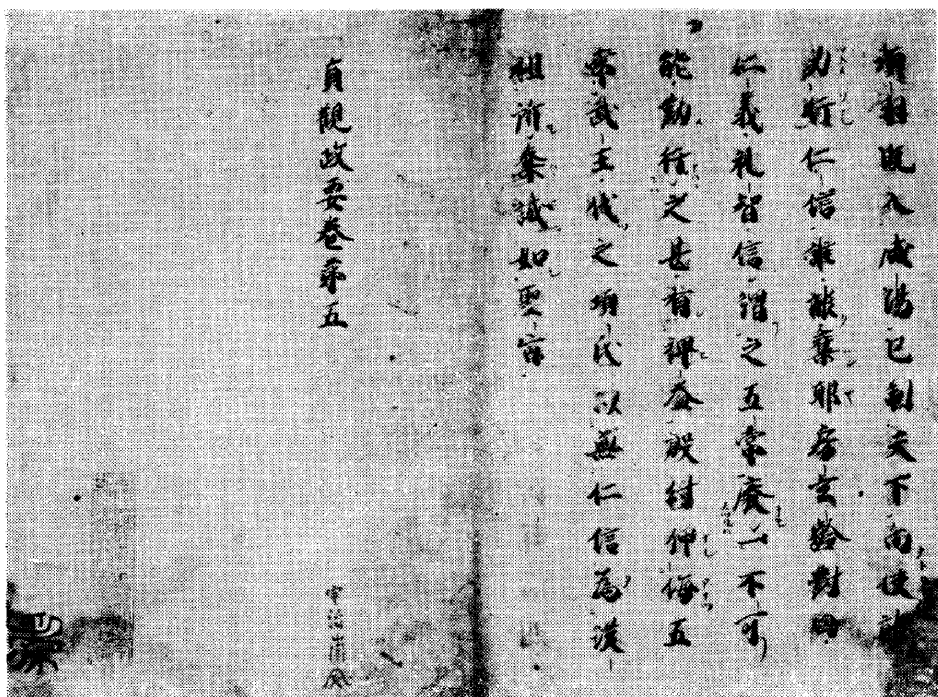 項羽既入咸陽已制天下向使能
力行仁信誰能奪耶房玄齡對曰
仁義礼智信謂之五常廢一不可
能勤行之甚有裨益殷紂仲侮五
常武王伐之項氏以無仁信為漢
祖所奪誠如聖旨
貞觀政要卷第五